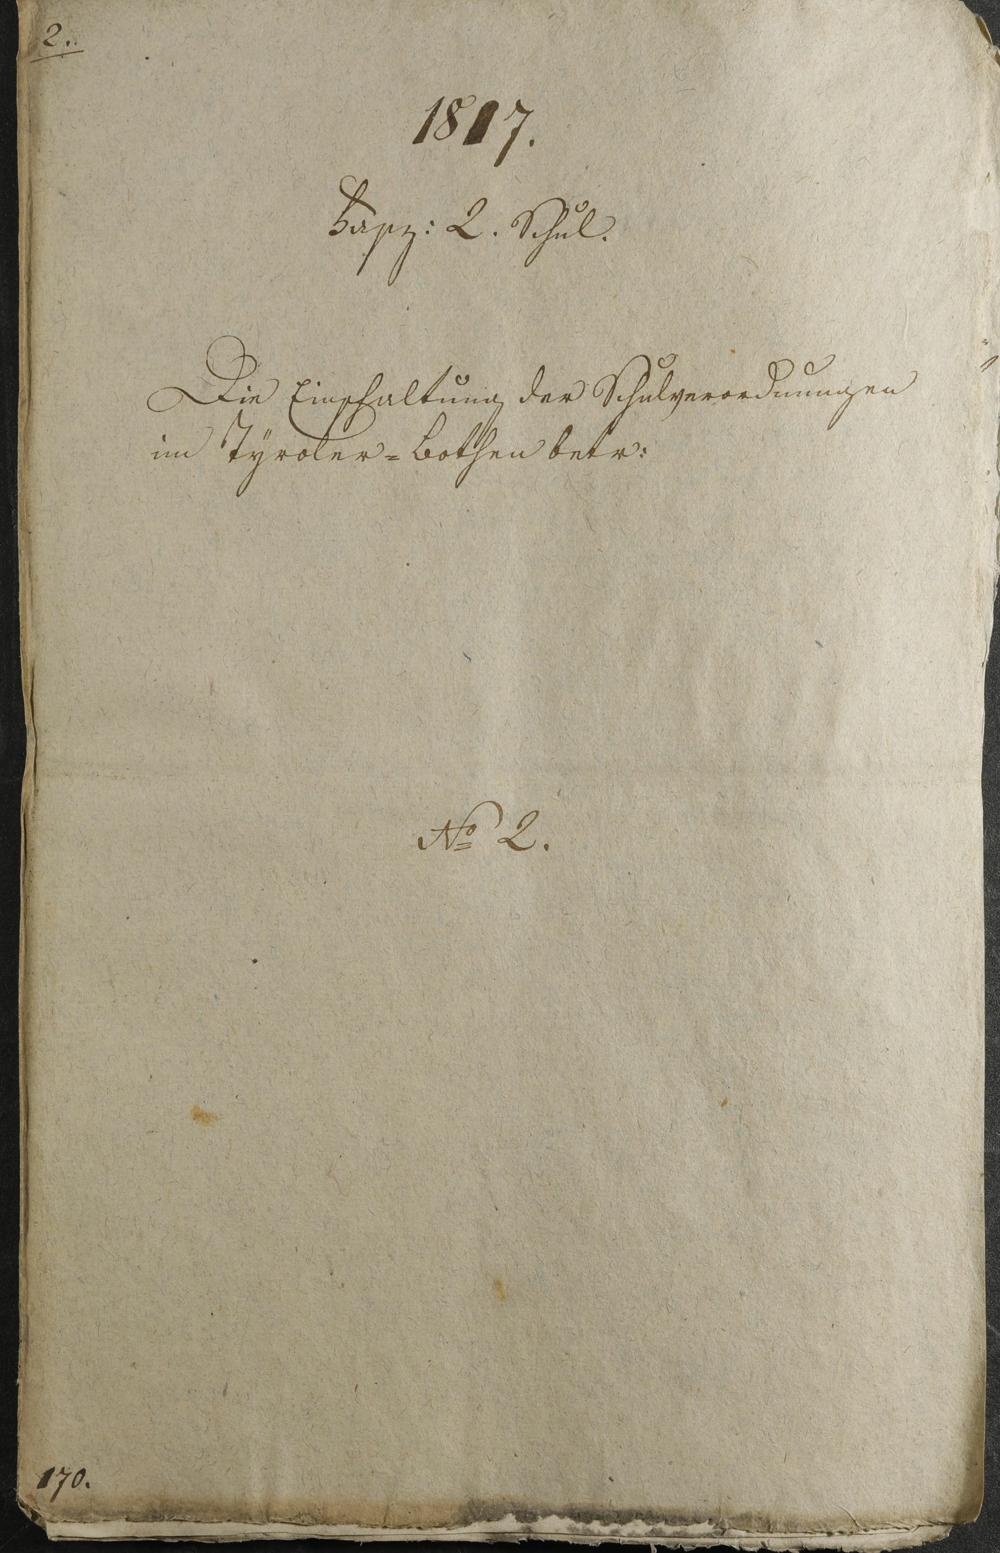 2.
1817.
Fasz: 2. Schul.
Die Einschaltung der Schulverordnungen
im Tyroler-Bothen betr:
No 2.
170.